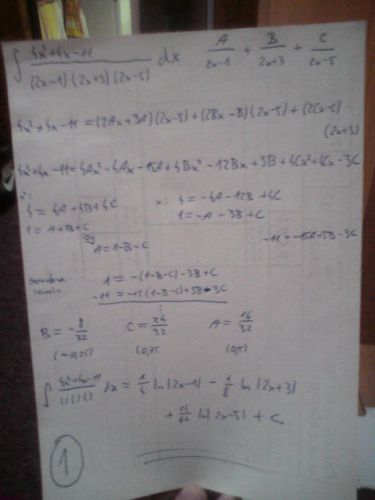 ∫ (4x²+4x-11)/((2x-1)(2x+3)(2x-5)) dx   A/(2x-1) + B/(2x+3) + C/(2x-5)
4x²+4x-11 = (2Ax+3A)(2x-5)+(2Bx-B)(2x-5)+(2Cx-C)·
(2x+3)
4x²+4x-11 = 4Ax²-4Ax-15A+4Bx²-12Bx+5B+4Cx²+4Cx-3C
x²:   x: 4 = -4A-12B+4C
4 = 4A+4B+4C   1 = -A-3B+C
1 = A+B+C
A = 1-B-C   -11 = -15A+5B-3C
1 = -(1-B-C)-3B+C
-11 = -15(1-B-C)+5B-3C
B = -8/32   C = 24/32   A = 16/32
(-0,25)   (0,75   (0,5)
∫ (4x²+4x-11)/(()()()) dx = 1/4 ln|2x-1| - 1/8 ln|2x+3|
ln|2x-5| + C
1